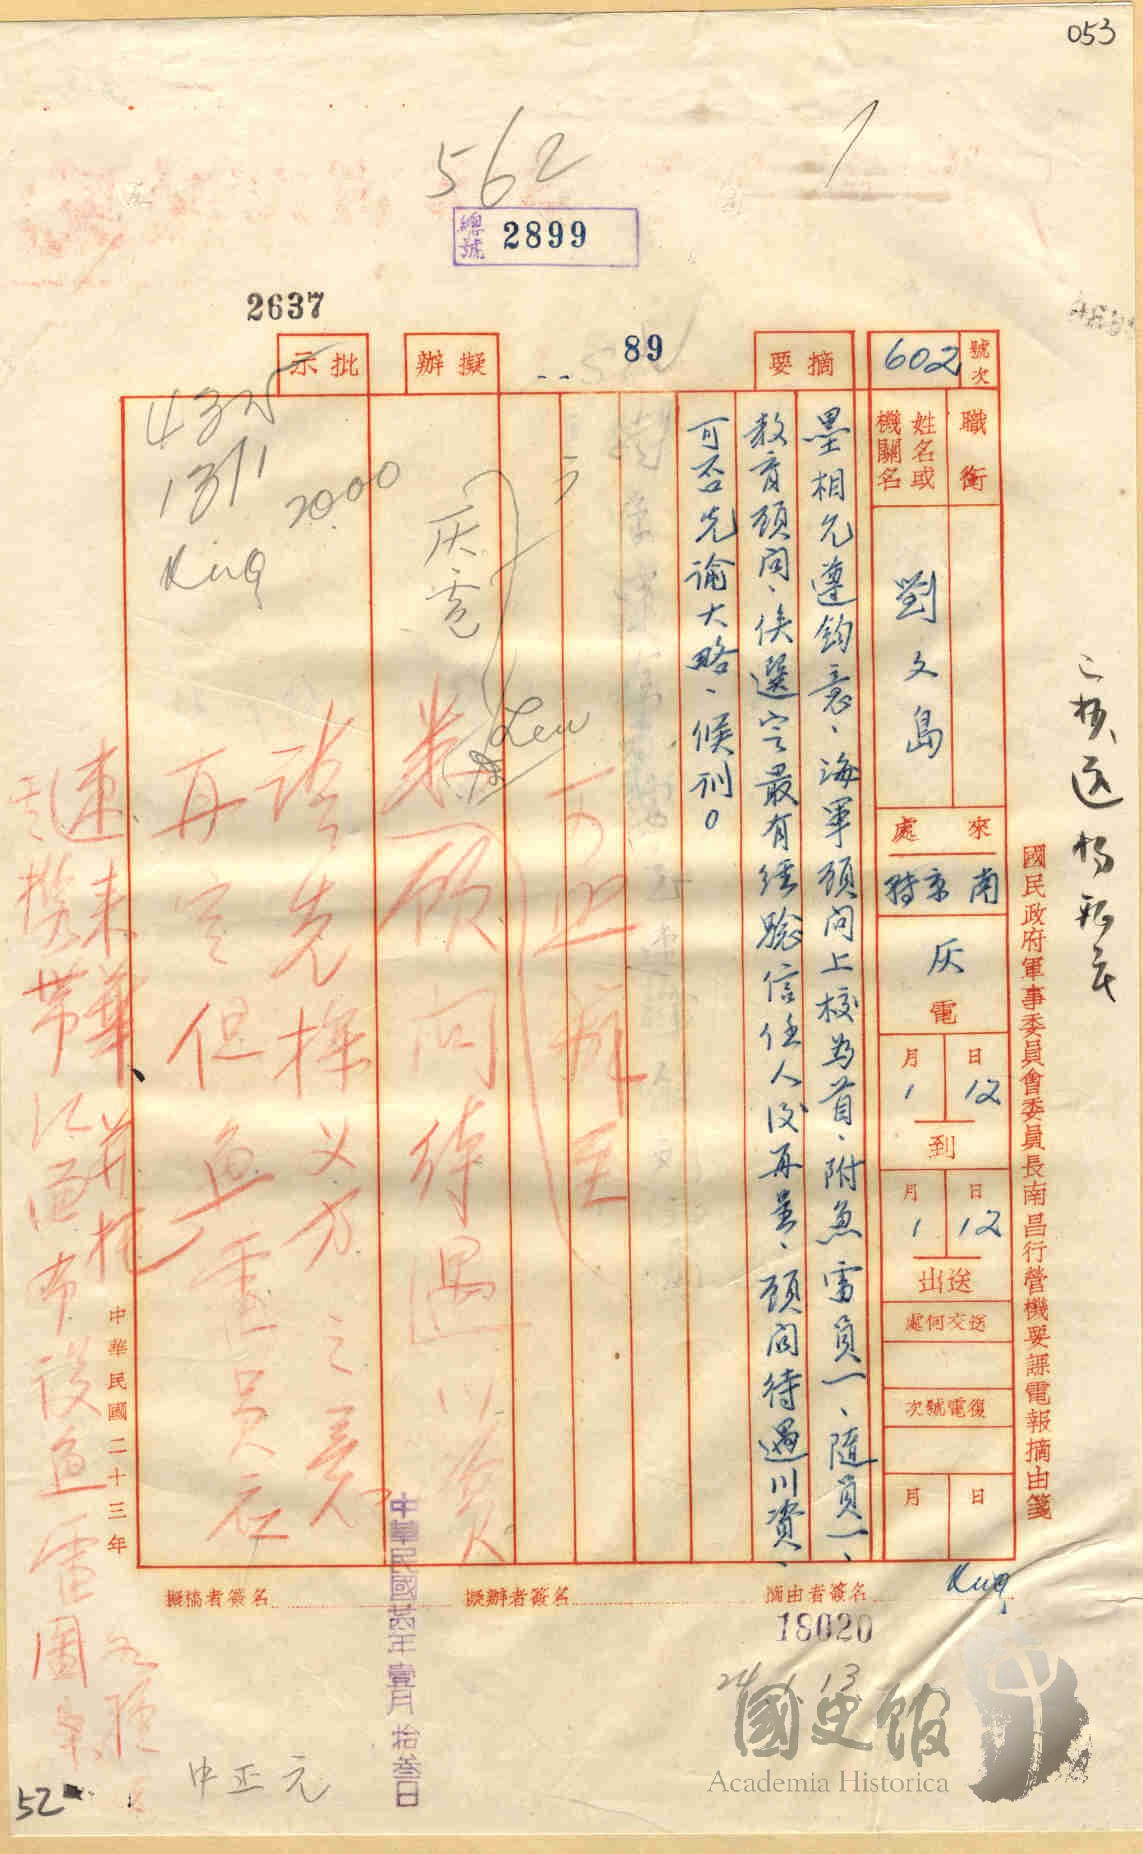 053
562
總號 2899
2637
89
號次 602
職銜
姓名或機關名
劉文島
來處
南京轉
灰電
1月12日
到
1月12日
送出
送交何處
復電號次
月 日
國民政府軍事委員會委員長南昌行營機要課電報摘由箋
摘要
墨相允遵鈞意、海軍顧問上校為首、附魚雷員一、隨員一、
教育顧問、俟選定最有經驗信任人後再呈、顧問待遇川資、
可否先諭大略、候訓。
擬辦
灰電
可照辦
顧問待遇川資
請先探義方之意
再定但魚雷員應
速來華并托
其攜帶江面布設魚雷圖
批示
4325
13/1
2000
King
Lew
中華民國二十三年
摘由者簽名 King
擬辦者簽名
擬稿者簽名
18020
24 1 13
中華民國廿四年壹月拾叁日
中正元
52
國史館
Academia Historica